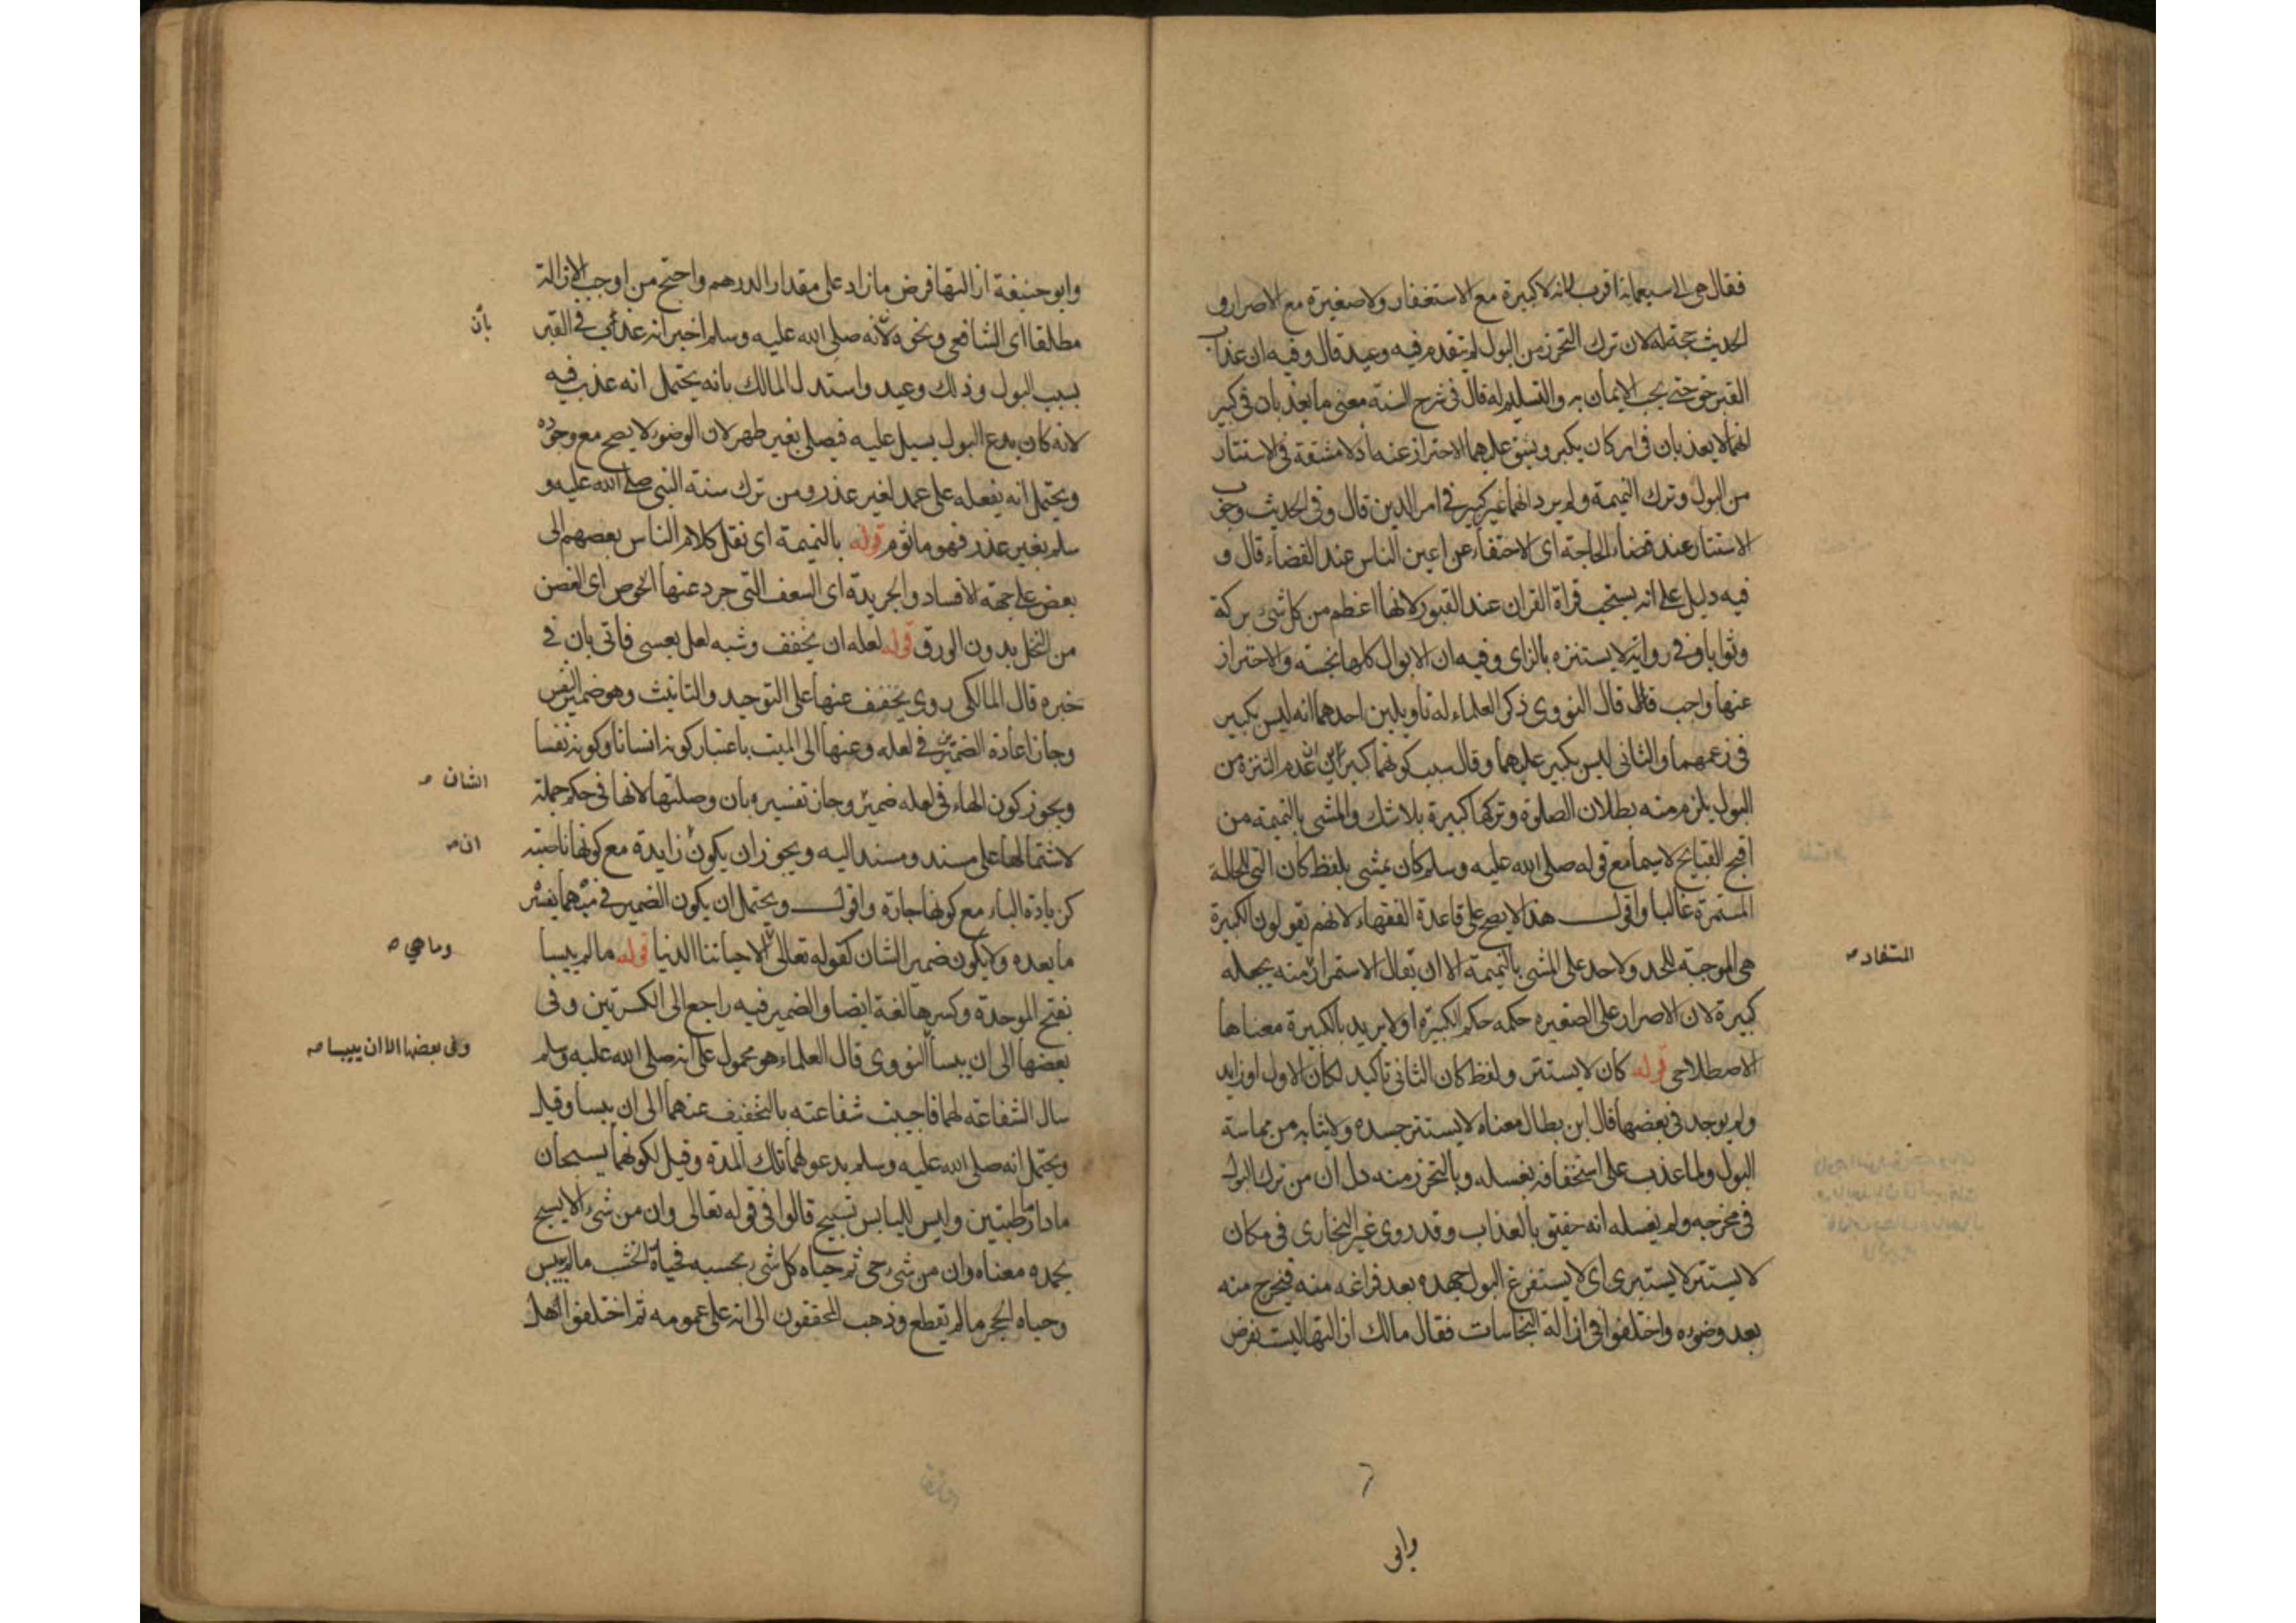 فقال هي الا سبعماية اقرب لانه لا كبيرة مع الاستغفار ولا صغيرة مع الاصرار وفى
الحديث حجة له لان ترك التحرز من البول لم يتقدم فيه وعيد قال وفيه ان عذاب
القبر حق حتى يجب الايمان به والتسليم له قال فى شرح السنة معنى ما يعذبان فى كبير
انهما لا يعذبان فى امر كان يكبر ويشق عليهما الاحتراز عنه اذ لا مشقة فى الاستتار
من البول وترك النميمة ولم يرد انهما غير كبير فى امر الدين قال وفى الحديث وجوب
الاستتار عند قضاء الحاجة اى الاختفاء عن اعين الناس عند القضاء قال و
فيه دليل على انه يستحب قراة القران عند القبور لانها اعظم من كل شئ بركة
وثوابا وفى رواية لا يستنزه بالزاى وفيه ان الابوال كلها نجسة والاحتراز
عنها واجب قال قال النووى ذكر العلماء له تاويلين احدهما انه ليس بكبير
فى زعمهما والثانى ليس بكبير عليهما وقال سبب كونهما كبيرين ان عدم التنزه من
البول يلزم منه بطلان الصلوة وتركها كبيرة بلا شك والمشى بالنميمة من
اقبح القبايح لا سيما مع قوله صلى الله عليه وسلم كان يمشى بلفظ كان التى للحالة
المستمرة غالبا واقول هذا لا يصح على قاعدة الفقهاء لانهم يقولون الكبيرة
هى الموجبة للحد ولا حد على المشى بالنميمة الا ان يقال الاستمرار منه يجعله
المستفاد صح
كبيرة لان الاصرار على الصغيره حكمه حكم الكبيرة او لا يريد بالكبيرة معناها
الاصطلاحى قوله كان لا يستتر ولفظ كان الثانى تاكيد لكان الاول او زايد
ولم يوجد فى بعضها قال ابن بطال معناه لا يستتر جسده ولا ثيابه من مماسة
البول ولما عذب على استخفافه بغسله وبالتحرز منه دل ان من ترك البول
فى مخرجه ولم يغسله انه حقيق بالعذاب وقد روى غير البخارى فى مكان
لا يستتر لا يستبرى اى لا يستفرغ البول جهده بعد فراغه منه فيخرج منه
بعد وضوءه واختلفوا فى ازالة النجاسات فقال مالك ازالتها ليست بفرض
وابو
وابو حنيفة ازالتها فرض ما زاد على مقدار الدرهم واحتج من اوجب الازالة
مطلقا اى الشافعى ونحوه لانه صلى الله عليه وسلم اخبر انه عذاب فى القبر
بأن
بسبب البول وذلك وعيد واستدل لمالك بانه يحتمل انه عذب فيه
لانه كان يدع البول يسيل عليه فيصلى بغير طهر لان الوضوء لا يصح مع وجوده
ويحتمل انه يفعله على عمد لغير عذر ومن ترك سنة النبى صلى الله عليه و
سلم بغير عذر فهو ماثوم قوله بالنميمة اى نقل كلام الناس بعضهم الى
بعض على جهة الافساد والجريدة اى السعف التى جرد عنها الخوص اى الغصن
من النخل بدون الورق قوله لعله ان يخفف وشبه لعل بعسى فاتى بان فى
خبره قال المالكى روى يخفف عنها على التوحيد والتانيث وهو ضمير النفس
وجاز اعادة الضميرين فى لعله وعنها الى الميت باعتبار كونه انسانا وكونه نفسا
ويجوز كون الهاء فى لعله ضمير وجاز تفسيره بان وصلتها لانها فى حكم جملة
الشان صح
لاشتمالها على مسند ومسند اليه ويجوز ان يكون زايدة مع كونها ناصبة
ان صح
كزيادة الباء مع كونها جارة واقول ويحتمل ان يكون الضمير مبهما يفسره
ما بعده ولا يكون ضمير الشان كقوله تعالى الا حياتنا الدنيا قوله ما لم ييبسا
وما هي صح
بفتح الموحدة وكسرها لغة ايضا والضمير فيه راجع الى الكسرتين وفى
بعضها الى ان ييبسا النووى قال العلماء هو محمول على انه صلى الله عليه وسلم
وفى بعضها الا ان ييبسا صح
سال الشفاعة لهما فاجيبت شفاعته بالتخفيف عنهما الى ان ييبسا وقيل
ويحتمل انه صلى الله عليه وسلم يدعو لهما تلك المدة وقيل لكونهما يسبحان
ما داما رطبتين وليس لليابس تسبيح قالوا فى قوله تعالى وان من شئ الا يسبح
بحمده معناه وان من شئ حى ثم حياه كل شئ بحسبه فحياة الخشب ما لم ييبس
وحياه الحجر ما لم يقطع وذهب المحققون الى انه على عمومه ثم اختلفوا هل